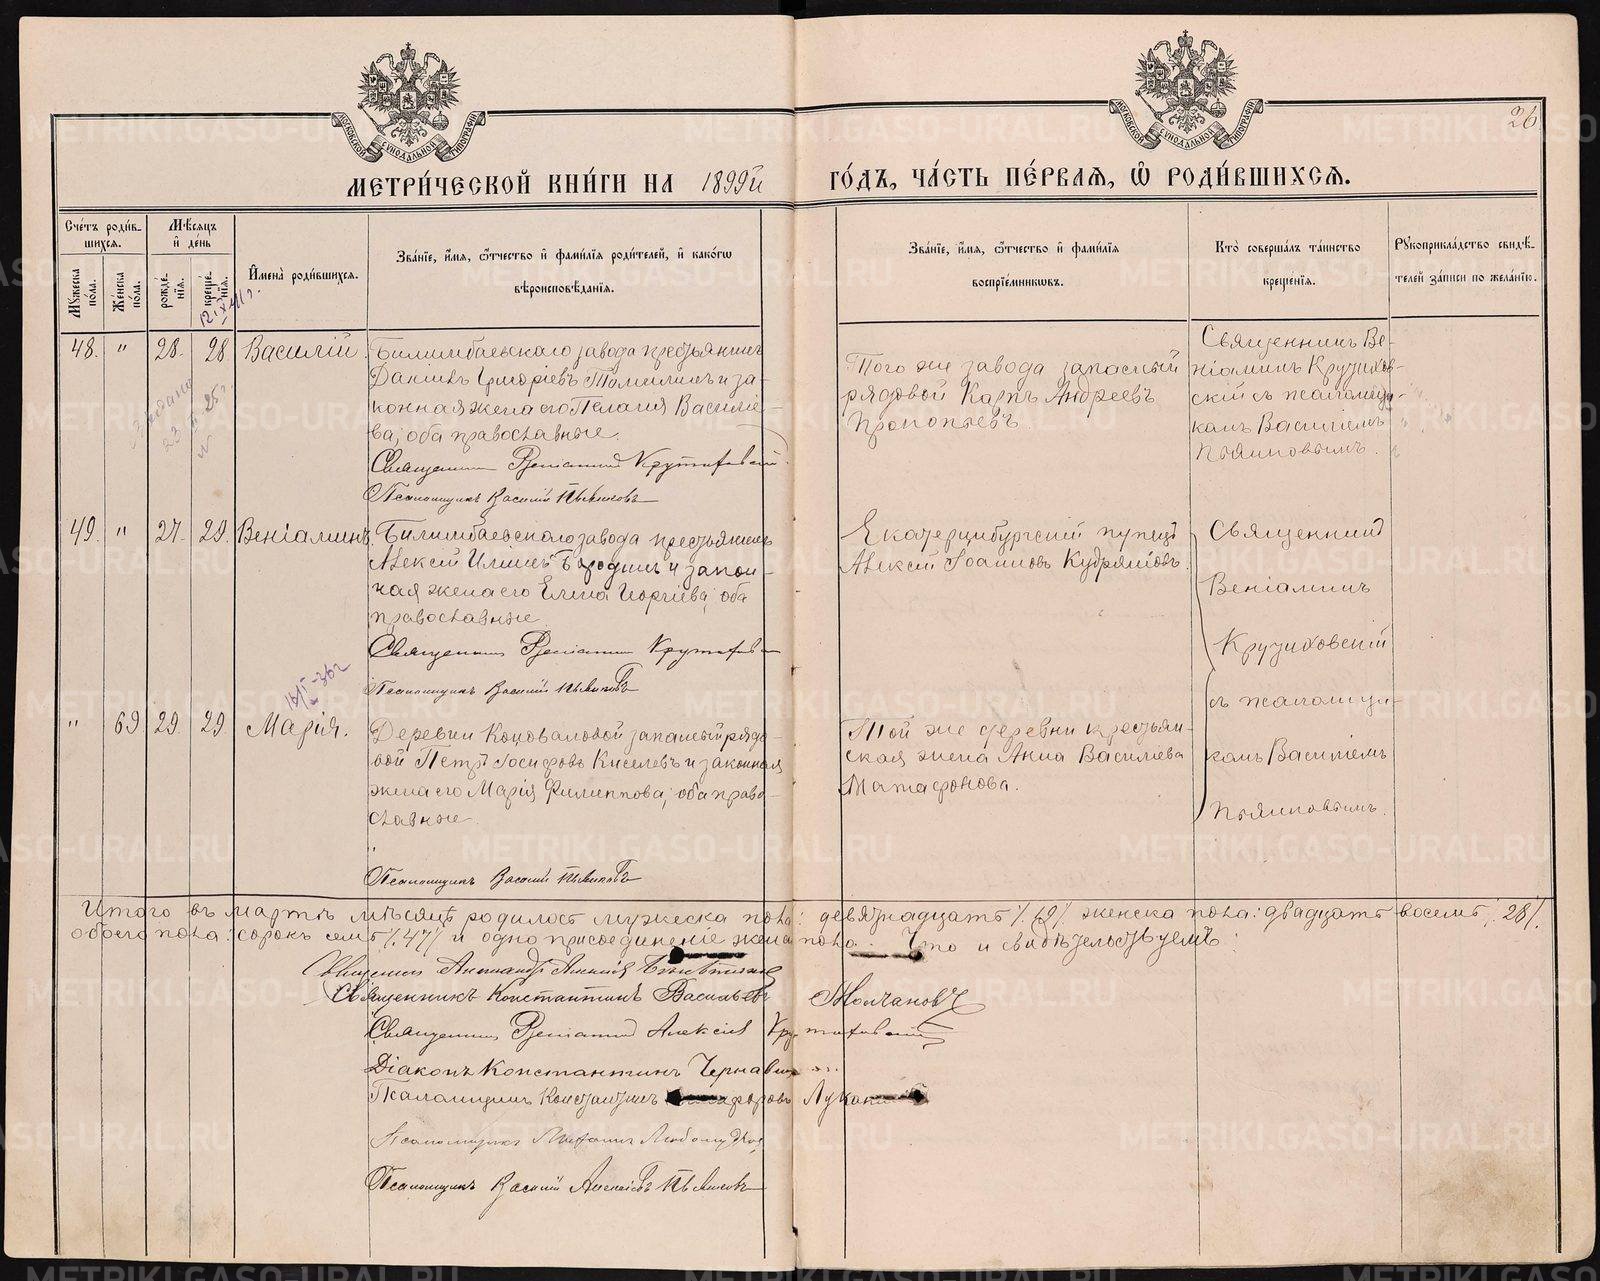 26
МЕТРИ́ЧЕСКОЙ КНИ́ГИ НА 1899й ГО́ДЪ, ЧА́СТЬ ПЕ́РВАѦ, Ѡ҆ РОДИ́ВШИХСѦ.
Сче́тъ роди́вшихсѧ.
Мѣ́сѧцъ и҆ де́нь
И҆мена̀ роди́вшихсѧ.
Зва́нїе, и҆́мѧ, ѻ҆́тчество и҆ фами́лїѧ роди́телей, и҆ како́гѡ
вѣроисповѣ́данїѧ.
Зва́нїе, и҆́мѧ, ѻ҆́тчество и҆ фами́лїѧ
воспрїе́мникѡвъ.
Кто̀ соверша́лъ та́инство
креще́нїѧ.
Рꙋкоприкла́дство свидѣ́-
телей за́писи по жела́нїю.
Мꙋ́жеска по́ла.
Же́нска по́ла.
рожде́нїѧ.
креще́нїѧ.
48. " 28. 28 Василій
Билимбаевскаго завода крестьянинъ
Даніилъ Григоріевъ Томилинъ и за-
конная жена его Пелагія Василіе-
ва, оба православные.
Священникъ Веніаминъ Крутиховскій
Псаломщикъ Василій Пьянковъ
Того же завода запасный
рядовой Карпъ Андреевъ
Прокопьевъ.
Священникъ Ве-
ніаминъ Крутихов-
скій съ псаломщи-
комъ Василіемъ
Пьянковымъ.
49. " 27. 29. Веніаминъ
Билимбаевскаго завода крестьянинъ
Алексій Иліинъ Бородинъ и закон-
ная жена его Елена Георгіева, оба
православные
Священникъ Веніаминъ Крутиховскій
Псаломщикъ Василій Пьянковъ
Екатеринбургскій купецъ
Алексій Іоанновъ Кудряшовъ.
Священникъ
Веніаминъ
Крутиховскій
съ псаломщи-
комъ Василіемъ
Пьянковымъ.
" 69 29. 29. Марія.
Деревни Коноваловой запасный рядо-
вой Петръ Іосифовъ Киселевъ и законная
жена его Марія Филиппова, оба право-
славные.
"
Псаломщикъ Василій Пьянковъ
Той же деревни крестьян-
ская жена Анна Василіева
Матафонова.
Итого въ мартѣ мѣсяцѣ родилось мужеска пола: девятнадцать /.19/. женска пола: двадцать восемь /.28/.
обоего пола: сорокъ семь /.47/. и одно присоединеніе женска пола. Что и свидѣтельствуемъ:
Священникъ Александръ Алексіевъ
Священникъ Константинъ Васильевъ Молчановъ
Священникъ Веніаминъ Алексіевъ Крутиховскій
Діаконъ Константинъ Чернавинъ
Псаломщикъ Константинъ Лукан
Псаломщикъ Любомудровъ
Псаломщикъ Василій Алексіевъ Пьянковъ